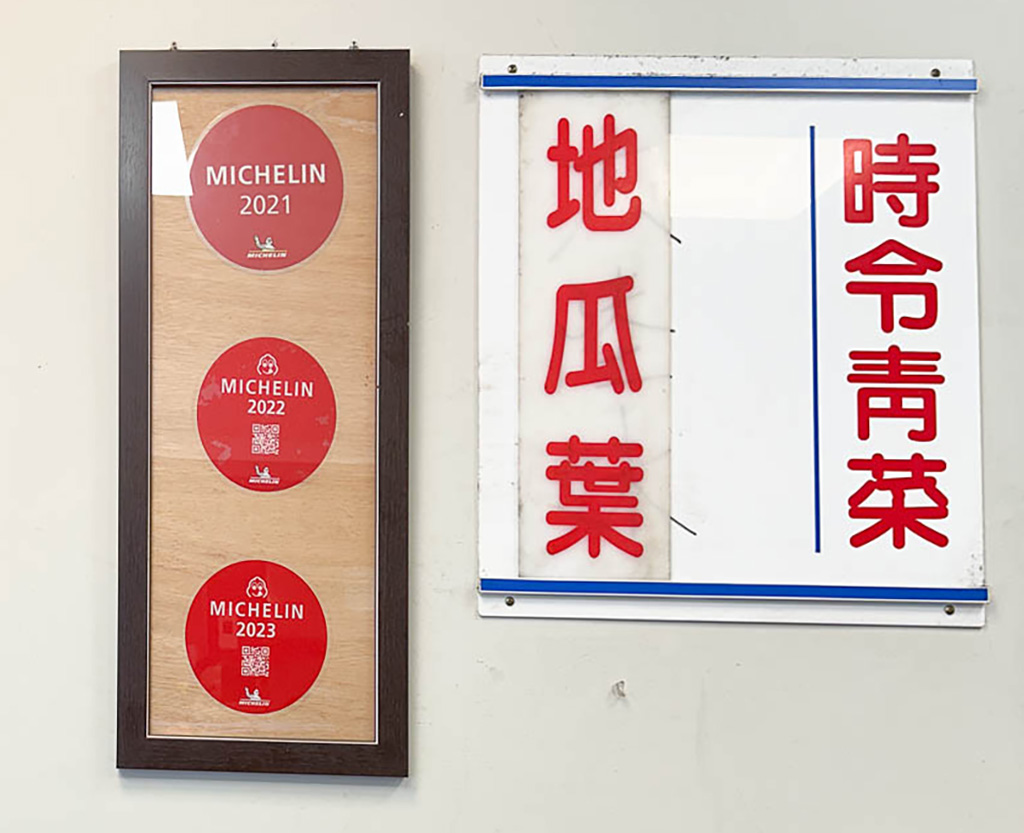 MICHELIN
2021
MICHELIN
MICHELIN
2022
MICHELIN
MICHELIN
2023
MICHELIN
時令靑菜
地瓜葉